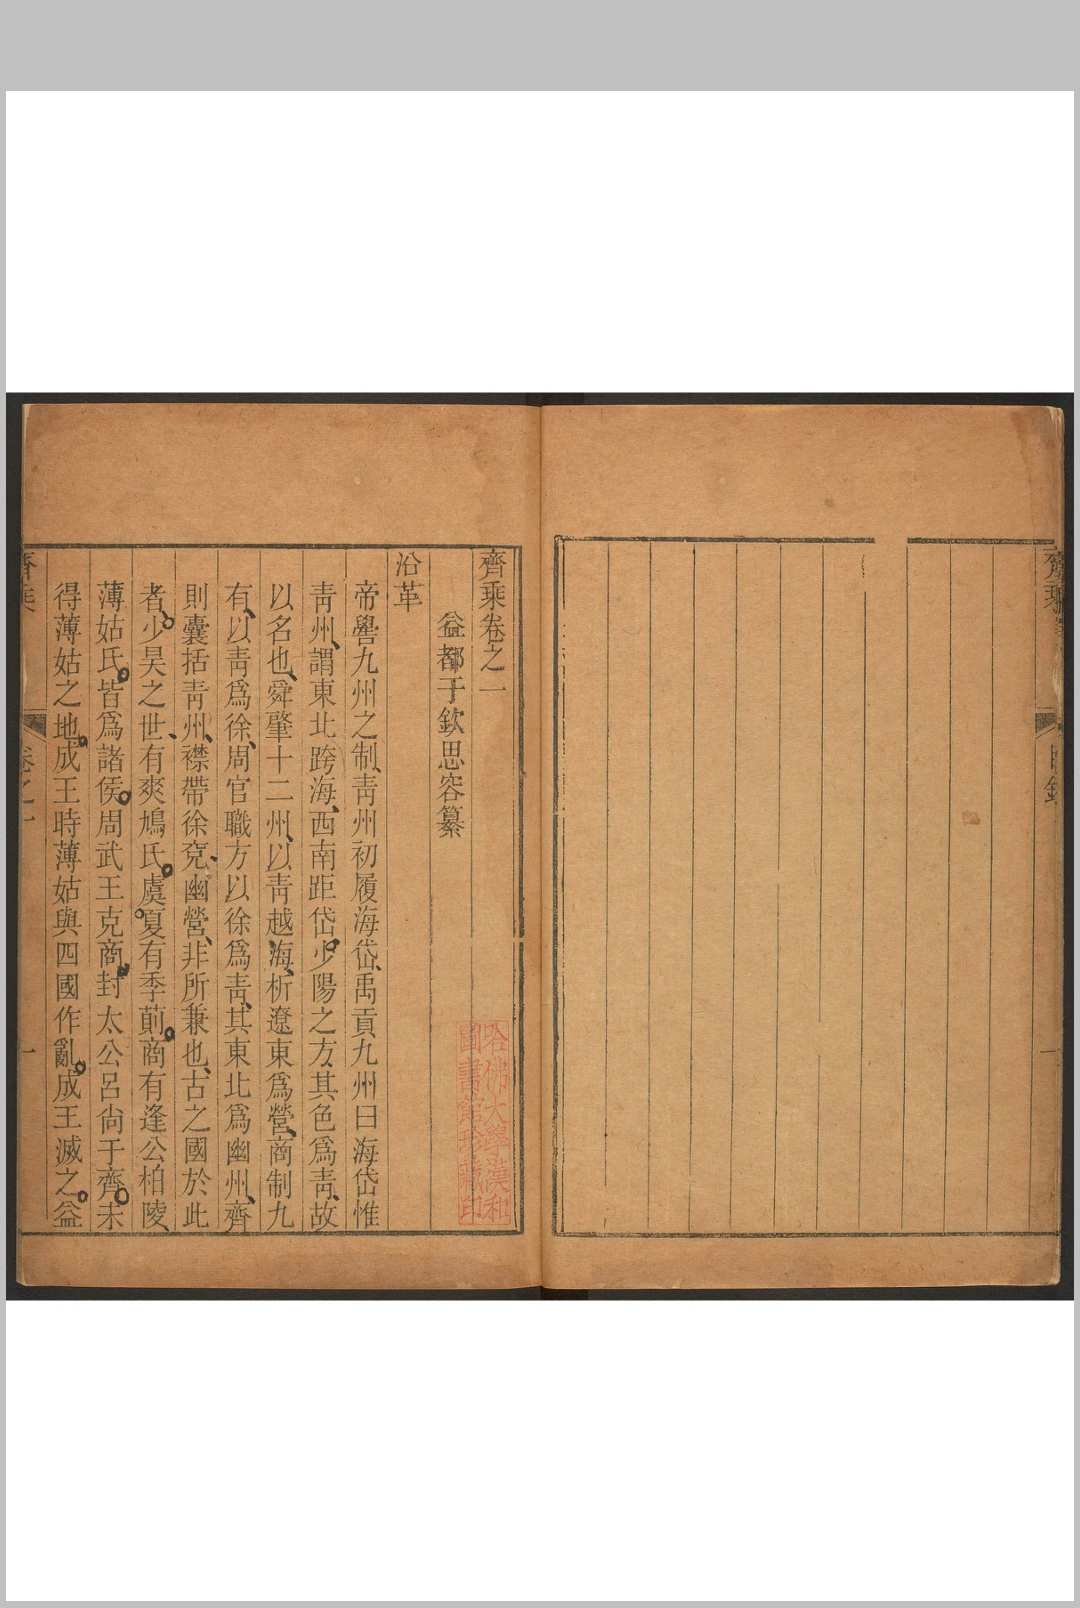 齊乗
目錄
一
齊乗卷之一
益都于欽思容纂
沿革
帝嚳九州之制靑州初履海岱禹貢九州曰海岱惟
靑州謂東北跨海西南距岱少陽之方其色爲靑故
以名也舜肇十二州以靑越海析遼東爲營商制九
有以靑爲徐周官職方以徐爲靑其東北爲幽州齊
則囊括靑州襟帶徐兗幽營非所兼也古之國於此
者少昊之世有爽鳩氏虞夏有季萴商有逢公柏陵
薄姑氏皆爲諸侯周武王克商封太公呂尙于齊未
得薄姑之地成王時薄姑與四國作亂成王滅之益
齊乗
卷之一
一
哈佛大學漢和
圖書館珍藏印